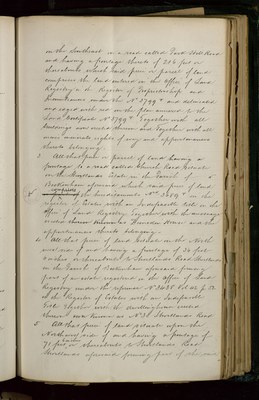 on the Southeast in a road called East Wick Road
and having a frontage thereto of 216 feet or
thereabouts which said piece or parcel of land
comprises the land entered in the Office of Land
Registry in the Register of Proprietorship and
Incumbrances under the No 1799 and delineated
and edged with red on the plan annexed to the
Land Certificate No 1799 Together with all
buildings now erected thereon and Together with all
easements rights of way and appurtenances
thereto belonging.
3 All that piece or parcel of land having a
frontage to a road called Church Road situate
in the Shortlands Estate in the Parish of
Beckenham aforesaid which said piece of land
the hereditaments No 1509 in the
register of Estates with an Indefeasible title in the
Office of Land Registry Together with the messuage
erected thereon known as House and the
appurtenances thereto belonging.
4 All that piece of land situate on the North
west side of and having a frontage of 36 feet
inches or thereabouts to Shortlands Road Shortlands
in the Parish of Beckenham aforesaid forming
part of an estate registered in the Office of Land
Registry under the reference No 2438 Vol
of the Register of Estates with an Indefeasible
title Together with the erected
thereon now known as No 31 Shortlands Road
5 All that piece of land situate upon the
Northwest side of and having a frontage of
71 feet or thereabouts to Shortlands Road
Shortlands aforesaid forming part of